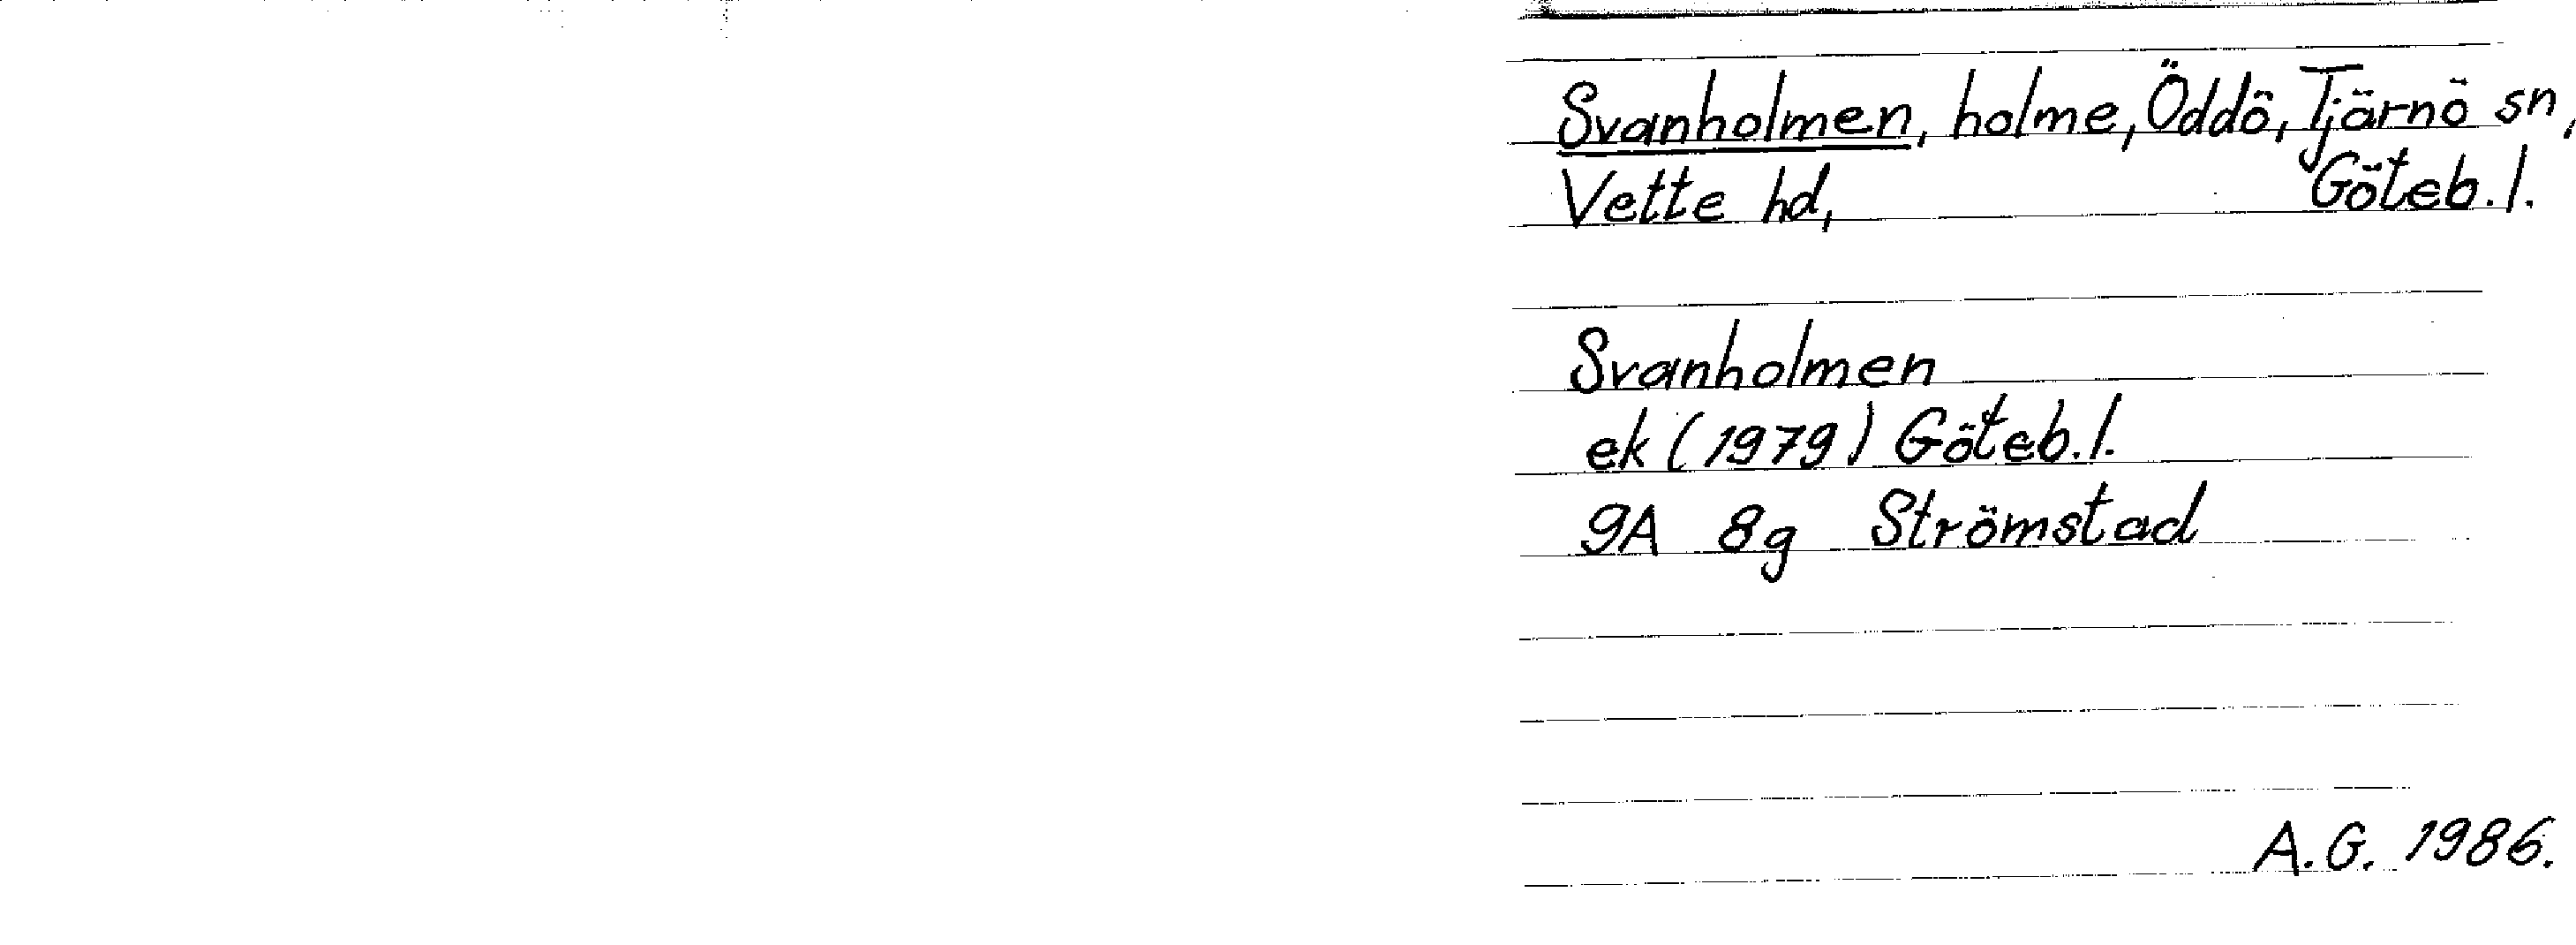 Svanholmen, holme, Öddö, Tjärnö sn,
Vette hd, Göteb. l.
Svanholmen
ek (1979) Göteb. l.
9A 8g Strömstad
A.G. 1986.